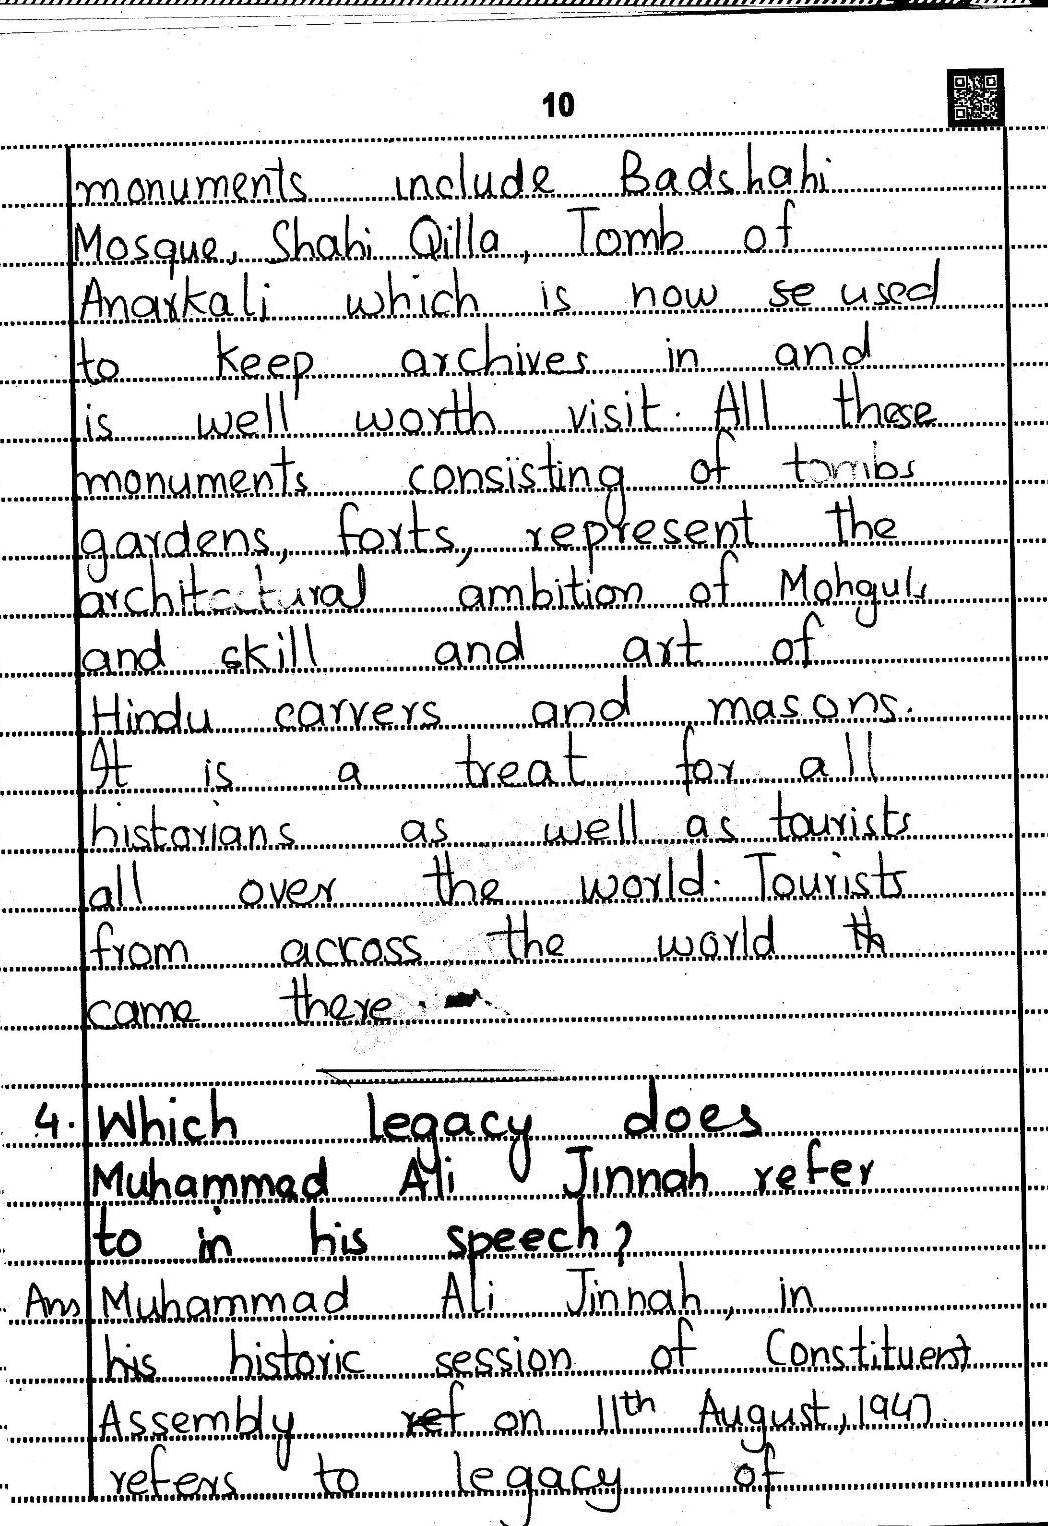 10
monuments include Badshahi
Mosque, Shahi Qilla, Tomb of
Anarkali which is now se used
to keep archives in and
is well worth visit. All these
monuments consisting of tombs
gardens, forts, represent the
architectural ambition of Mohguls
and skill and art of
Hindu carvers and masons.
It is a treat for all
historians as well as tourists
all over the world. Tourists
from accross the world th
came there.
4. Which legacy does
Muhammad Ali Jinnah refer
to in his speech?
Ans Muhammad Ali Jinnah, in
his historic session of Constituent
Assembly ref on 11th August, 1947
refers to legacy of